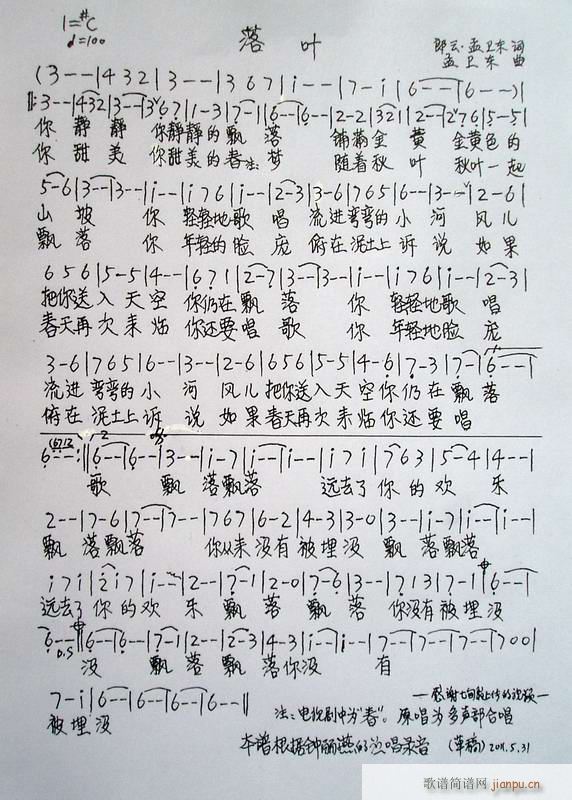 1=#C
♩=100
落 叶
郎云·孟卫东 词
孟 卫 东 曲
(3--|4 3 2|3--|3 6 7|i--|7-i|6--|6--)|
‖:3--|432|3--|3 6 7|1-3|7-1|6--|6--|2-2|321|2--|2 7 6|5-5|
你 静静 你静静的飘 落 铺满金 黄 金黄色的
你 甜美 你甜美的春注:梦 随着秋 叶 秋叶一起
5-6|3--|3--|i--|i 7 6|i--|2-3|3-6|7 6 5|6--|3--|2-6|
山坡 你 轻轻地歌 唱 流进弯弯的小 河 风儿
飘落 你 年轻的脸 庞 俯在泥土上诉 说 如果
6 5 6|5-5|4--|6 7 1|2-7|3--|3--|i--|i 7 6|i--|2-3|
把你送入天空 你仍在飘 落 你 轻轻地歌 唱
春天再次来临 你还要唱 歌 你 年轻地脸 庞
3-6|7 6 5|6--|3--|2-6|6 5 6|5-5|4-6|7-3|7-1|6--|
流进弯弯的小 河 风儿把你送入天空你仍在飘 落
俯在泥土上诉 说 如果春天再次来临你还要唱
6--:‖6--|6--|3--|i-7|i--|i--|i 7 i|7 6 3|5-4|4--|
歌 飘 落飘落 远去了你的欢 乐
2--|7-6|7--|7--|7 6 7|6-2|4-3|3-0|3--|i-7|i--|i--|
飘 落飘落 你从未没有被埋没 飘 落飘落
i 7 i|2 i 7|i--|2--|7-1|2-0|7-6|3--|7 1 3|7-1|6--|
远去了你的欢 乐 飘 落 飘 落 你没有被埋没
6--‖6--|6--|7-1|2--|2-3|4-3|i--|i--|7--|7--|7--|7 0 0|
D.S
没 飘落 飘落你没 有
7-i|6--|6--|6--|6--‖
被埋没
注:电视剧中为"春"。原唱为多声部合唱
本谱根据钟丽燕的演唱录音 (草稿) 2011.5.31
歌谱简谱网
jianpu.cn